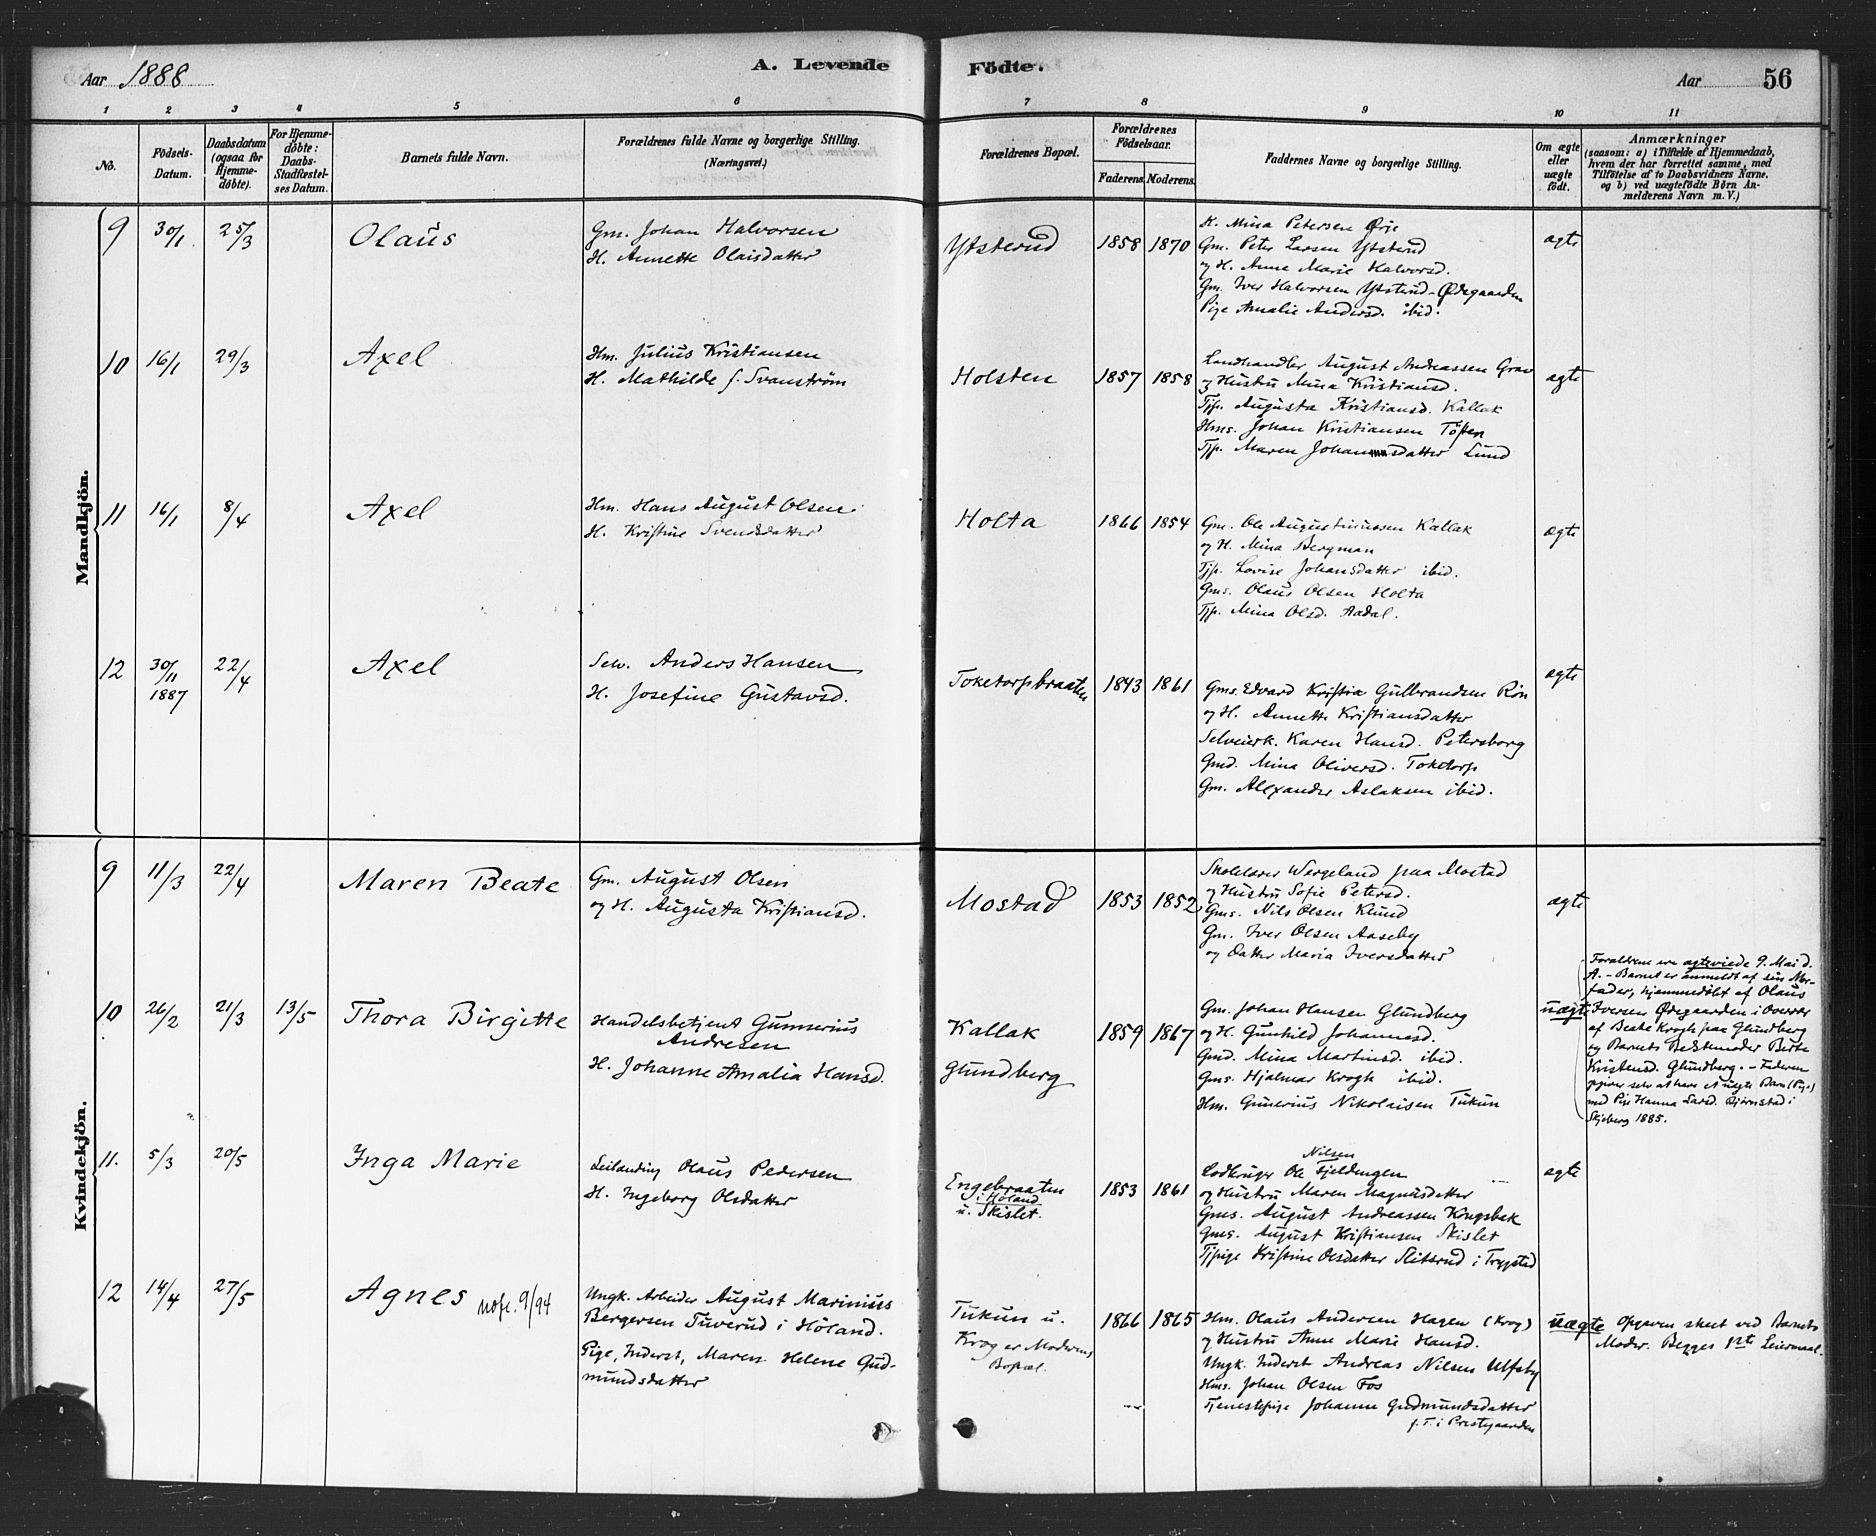 Aar 1888
A. Levende Födte.
Aar 56
1 2 3 4 5 6 7 8 9 10 11
No.
Födsels-Datum.
Daabsdatum (ogsaa för Hjemme-döbte).
For Hjemme-döbte: Daabs-Stadfæstel-ses Datum.
Barnets fulde Navn.
Forældrenes fulde Navne og borgerlige Stilling.
(Næringsvei.)
Forældrenes Bopæl.
Forældrenes Födselsaar.
Faderens. Moderens.
Faddernes Navne og borgerlige Stilling.
Om ægte eller uægte födt.
Anmærkninger
(saasom: a) i Tilfælde af Hjemmedaab,
hvem der har forrettet samme, med
Tilföielse af to Daabsvidners Navne.
og b) ved uægtefödte Börn An-
melderens Navn m. V.)
Mandkjön.
9 30/1 25/3 Olaus
Gm. Johan Halvorsen
H. Annette Olaisdatter
Ytsterud 1858 1870
K. Mina Petersen Ørje
Gm. Peter Larsen Ytsterud
og H. Anne Marie Halvorsd.
Gm. Iver Halvorsen Ytsterud-Ødegaarden
Pige Amalie Andersd. ibid.
ægte
10 16/1 29/3 Axel
Hm. Julius Kristiansen
H. Mathilde f. Svanström
Holsten 1857 1858
Landhandler August Andreassen Grav
og Hustru Mina Kristiansd.
Tjp. Augusta Kristiansd. Kallak
Hms. Johan Kristiansen Töften
Tjp. Maren Johannsdatter Lund
ægte
11 16/1 8/4 Axel
Hm. Hans August Olsen
H. Kristine Svendsdatter
Holta 1866 1854
Gm. Ole Augustinussen Kallak
og H. Mina Bergman
Tjp. Lovise Johansdatter ibid.
Gms. Olaus Olsen Holta
Tjp. Mina Olsd. Aadal.
ægte
12 30/11 1887 22/4 Axel
Selv. Anders Hansen
H. Josefine Gustavsd.
Toketorpbraaten 1843 1861
Gms. Edvard Kristia Gulbrandsen Rön
og H. Annette Kristiansdatter
Selveierk. Karen Hansd. Petersborg
Gmd. Mina Oliversd. Toketorp
Gm. Alexander Aslaksen ibid.
ægte
Kvindekjön.
9 11/3 22/4 Maren Beate
Gm. August Olsen
og H. Augusta Kristiansd.
Mostad 1853 1852
Skolelærer Wergeland paa Mostad
og Hustru Sofie Petersd.
Gms. Nils Olsen Klund
Gm. Iver Olsen Aaseby
og Datter Maria Iversdatter
ægte
10 26/2 21/3 13/5 Thora Birgitte
Handelsbetjent Gunnerius
Andresen
H. Johanne Amalia Hansd.
Kallak
Glundberg
1859 1867
Gm. Johan Hansen Glundberg
og H. Gunhild Johannesd.
Gmd. Mina Martinsd. ibid.
Gms. Hjalmar Krogh ibid.
Hm. Gunerius Nikolaisen Tukun
uægte
Forældrene ere ægteviede 9. Mai d.
A. - Barnet er anmeldt af sin Mor-
fader, hjemmedöbt af Olaus
Iversen Ødegaarden i Overv.
af Beate Krogh paa Glundberg
og Barnets Bedstemoder Birte
Kristensd. Glundberg. - Faderen
opgiver selv at have et uægte Barn (Pige)
med Pige Hanna Larsd. Bjørnstad i
Skjeberg 1885.
11. 5/3 20/5 Inga Marie
Leilænding Olaus Pedersen
H. Ingeborg Olsdatter
Engebraaten
i Höland
u. Skislet.
1853 1861
Nilsen
Lodbruger Ole Fjeldengen
og Hustru Maren Magnusdatter
Gms. August Andreassen Kongsbæk
Gms. August Kristiansen Skislet
Tjpige Kristine Olsdatter Slitsrud i Trygstad
ægte
12 14/4 27/5 Agnes
Ungk. Arbeider August Marinius
Bergersen Tuverud i Höland.
Pige, Inderst, Maren Helene Gud-
mundsdatter
Tukun u.
Krog er Moderens
Bopæl.
1866 1865
Hm. Olaus Andersen Hagen (Krog)
og Hustru Anne Marie Hansd.
Ungk. Inderst Andreas Nilsen Ulfsby
Hms. Johan Olsen Fos
Tjenestepige Johanne Gudmundsdatter
f. T. i Prestegaarden
uægte
Opgaven skeet ved Barnets
Moder. Begges 1ste Leiermaal.